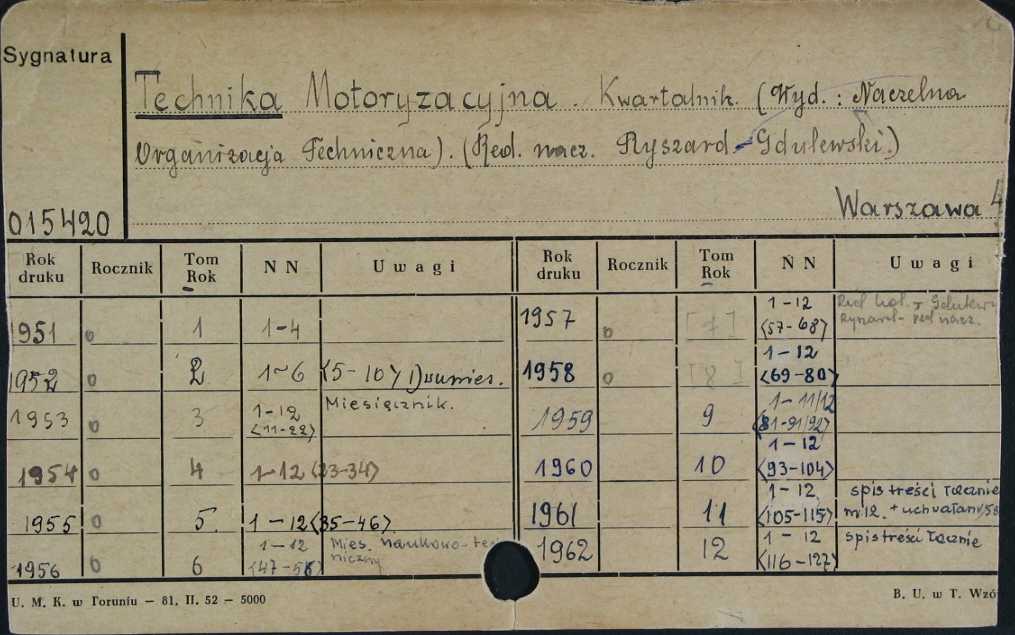 Sygnatura
Technika Motoryzacyjna. Kwartalnik. (Wyd.: Naczelna
Organizacja Techniczna). (Red. nacz. Ryszard Gdulewski.)
015420 Warszawa
Rok druku Rocznik Tom Rok N N Uwagi Rok druku Rocznik Tom Rok N N Uwagi
1951 o 1 1-4
1952 o 2 1-6 <5-10>
1953 o 3 1-12 <11-22> Miesięcznik.
1954 o 4 1-12 <23-34>
1955 o 5. 1-12 <35-46>
1956 o 6 1-12 Mies. naukowo-te
niczny
1957 o [7] 1-12 <57-68>
Ryszard - red nacz.
1958 o [8] 1-12 <69-80>
1959 9 1-11/12 <81-91/92>
1960 10 1-12 <93-104>
1961 11 1-12 <105-115> spis treści rocznie
1962 12 1-12 <116-127> spis treści rocznie
U. M. K. w Toruniu — 81. II. 52 — 5000 B. U. w T. Wzó